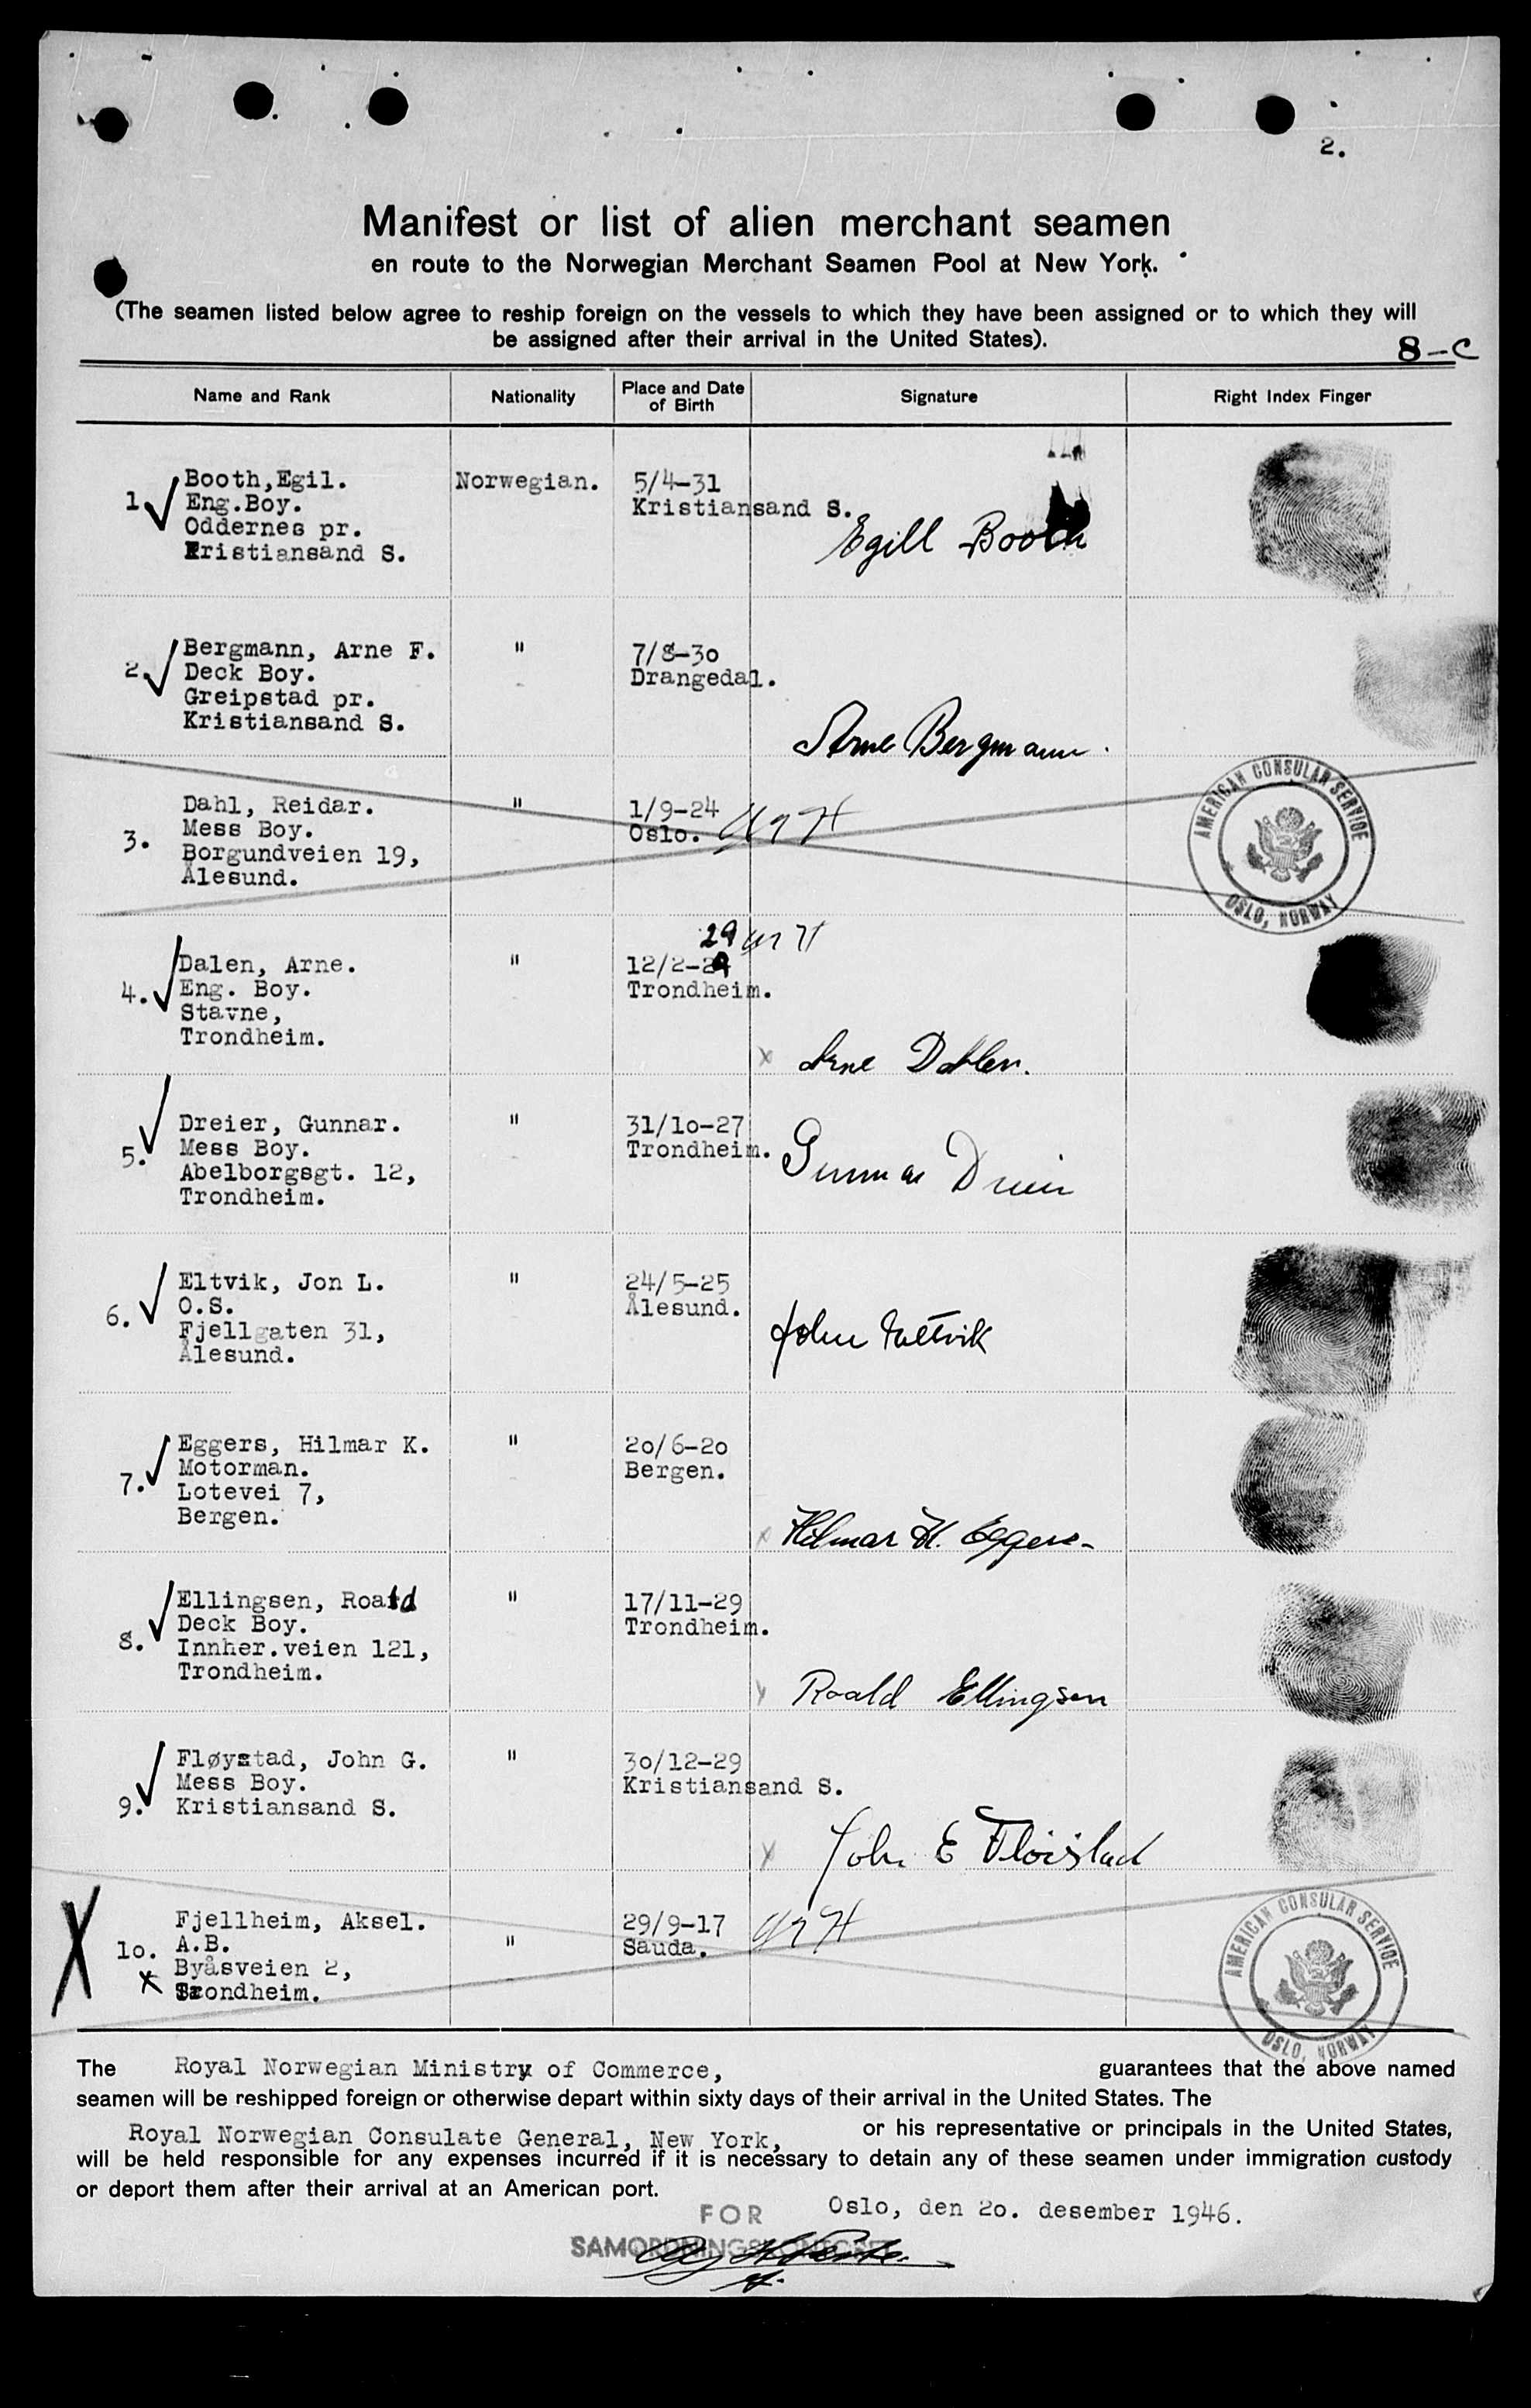 2.
Manifest or list of alien merchant seamen
en route to the Norwegian Merchant Seamen Pool at New York.
(The seamen listed below agree to reship foreign on the vessels to which they have been assigned or to which they will
be assigned after their arrival in the United States).
8-C
Name and Rank
Nationality
Place and Date
of Birth
Signature
Right Index Finger
1.
Booth,Egil.
Eng.Boy.
Oddernes pr.
Kristiansand S.
Norwegian.
5/4-31
Kristiansand S.
Egill Booth
2.
Bergmann, Arne F.
Deck Boy.
Greipstad pr.
Kristiansand S.
"
7/8-30
Drangedal.
Arne Bergmann.
3.
Dahl, Reidar.
Mess Boy.
Borgundveien 19,
Ålesund.
"
1/9-24
Oslo.
AMERICAN CONSULAR SERVICE
OSLO, NORWAY
4.
Dalen, Arne.
Eng. Boy.
Stavne,
Trondheim.
"
29
12/2-29
Trondheim.
x Arne Dahlen.
5.
Dreier, Gunnar.
Mess Boy.
Abelborgsgt. 12,
Trondheim.
"
31/10-27
Trondheim.
Gunnar Dreier
6.
Eltvik, Jon L.
O.S.
Fjellgaten 31,
Ålesund.
"
24/5-25
Ålesund.
John Eltvik
7.
Eggers, Hilmar K.
Motorman.
Lotevei 7,
Bergen.
"
20/6-20
Bergen.
x Hilmar K. Eggers-
8.
Ellingsen, Roald
Deck Boy.
Innher.veien 121,
Trondheim.
"
17/11-29
Trondheim.
x Roald Ellingsen
9.
Fløystad, John G.
Mess Boy.
Kristiansand S.
"
30/12-29
Kristiansand S.
x John E Fløistad
X
10.
x
Fjellheim, Aksel.
A.B.
Byåsveien 2,
Trondheim.
"
29/9-17
Sauda.
AMERICAN CONSULAR SERVICE
OSLO, NORWAY
The Royal Norwegian Ministry of Commerce, guarantees that the above named
seamen will be reshipped foreign or otherwise depart within sixty days of their arrival in the United States. The
Royal Norwegian Consulate General, New York, or his representative or principals in the United States,
will be held responsible for any expenses incurred if it is necessary to detain any of these seamen under immigration custody
or deport them after their arrival at an American port.
Oslo, den 20. desember 1946.
FOR